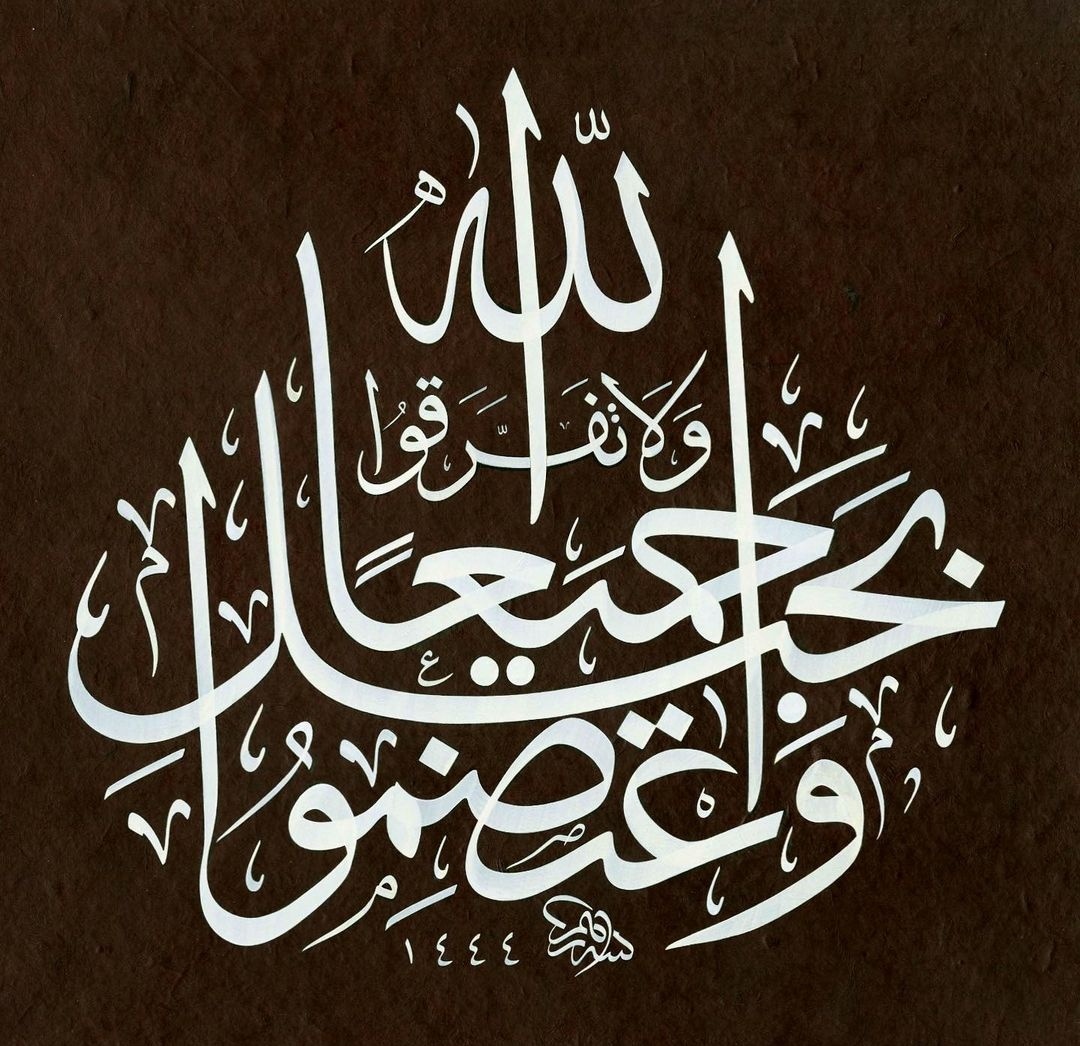 وَاعْتَصِمُوا
بِحَبْلِ
اللّٰهِ
جَمِيعًا
وَلَا تَفَرَّقُوا
١٤٤٤